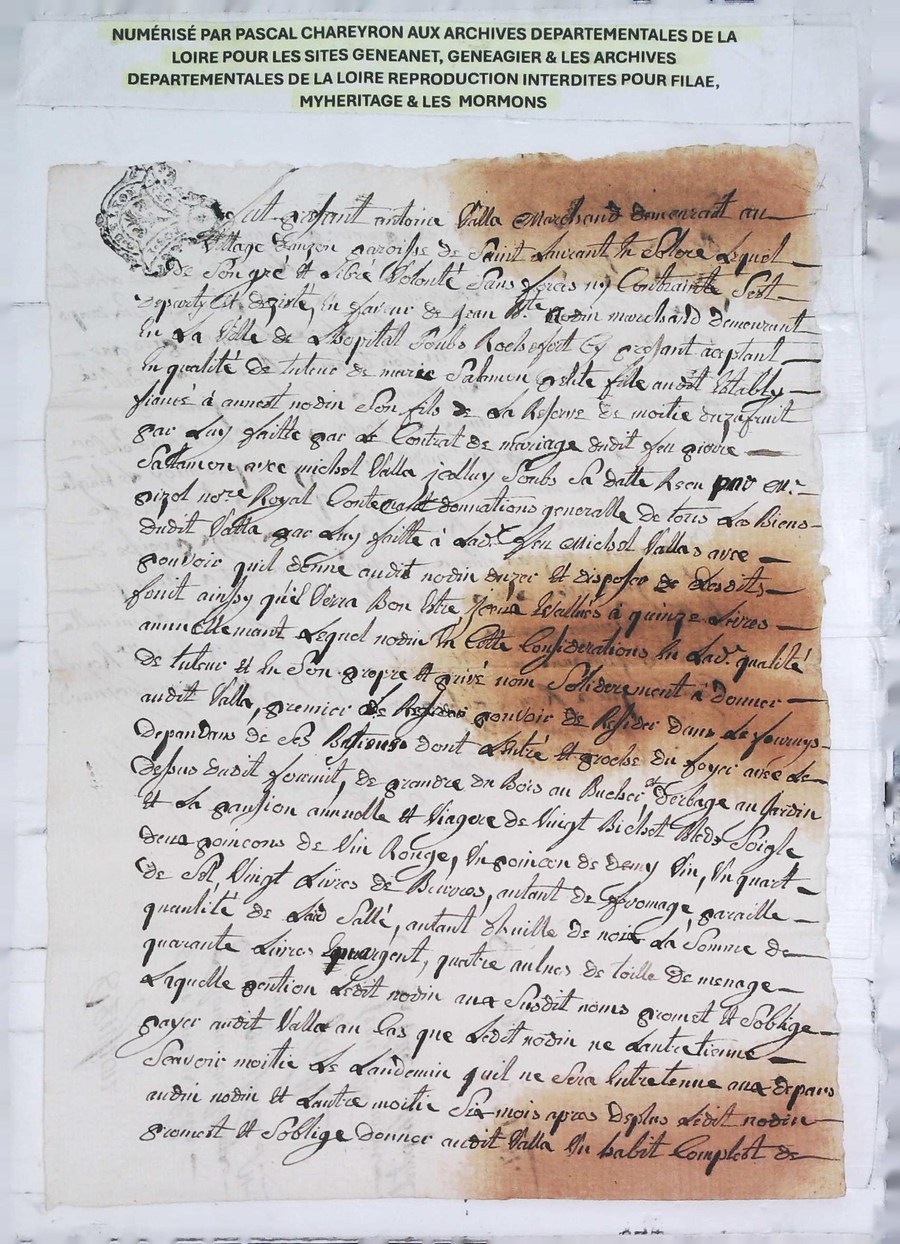 NUMÉRISÉ PAR PASCAL CHAREYRON AUX ARCHIVES DEPARTEMENTALES DE LA
LOIRE POUR LES SITES GENEANET, GENEAGIER & LES ARCHIVES
DEPARTEMENTALES DE LA LOIRE REPRODUCTION INTERDITES POUR FILAE,
MYHERITAGE & LES MORMONS
fut present antoine Valla Marchand demeurant au
Village parroisse de Saint Laurant En Solore Lequel
de Son gré et Libre Volonté Sans forces ny Contrainte Sest
departy et desisté, en faveur de Jean Bte nodin marchand demeurant
En La Ville de Lhopital Soubs Rochefort Cy present aceptant
En qualité de tuteur de marie Salamon petite fille audit Estably
fiancé à annest nodin Son fils de La Reserve de moitie duzufruit
par Luy faitte par Le Contrat de mariage dudit feu pierre
Salamon avec michel Valla Soubs Sa datte Receu par Me
nore Royal Contenant donnations generalle de tous Les Biens
dudit Valla par Luy faitte à Lade feu Michel Vallas avec
pouvoir quil donne audit nodin duzer et disposer de Lesdits
fruit ainsy qu'el Verra Bon Estre Evallués à quinze Livres
annuellemant Lequel nodin En Cette Considerations En Lade qualité
de tuteur et En Son propre et privé nom Soliderement à donner
audit Valla, premier pouvoir de Resider dans Le fournys
depandans de Ses Batiments dont Lentré est proche du foyer avec Le
depsus dudit fournit, de prandre du Bois au Bucher et derbage au Jardin
et La pansion annuelle et Viagere de Vingt Bichet Bleds Soigle
deux poincons de Vin Rouge, Un poincon de demy Vin, Un quart
de Sel, Vingt Livres de Beurres, autant de fromage, pareille
quantité de Lard Sallé, autant dhuille de noix La Somme de
quarante Livres argent, quatre aulnes de toille de menage
Laquelle pention Ledit nodin aux Susdit noms promet et Soblige
payer audit Valla au Cas que Ledit nodin ne Lantretienne
Scavoir moitie Le Landemin quil ne Sera Entretenue aux depans
audin nodin et Lautre moitie Six mois apres deplus Ledit nodin
promest et Soblige donner audit Valla Un habit Complest de